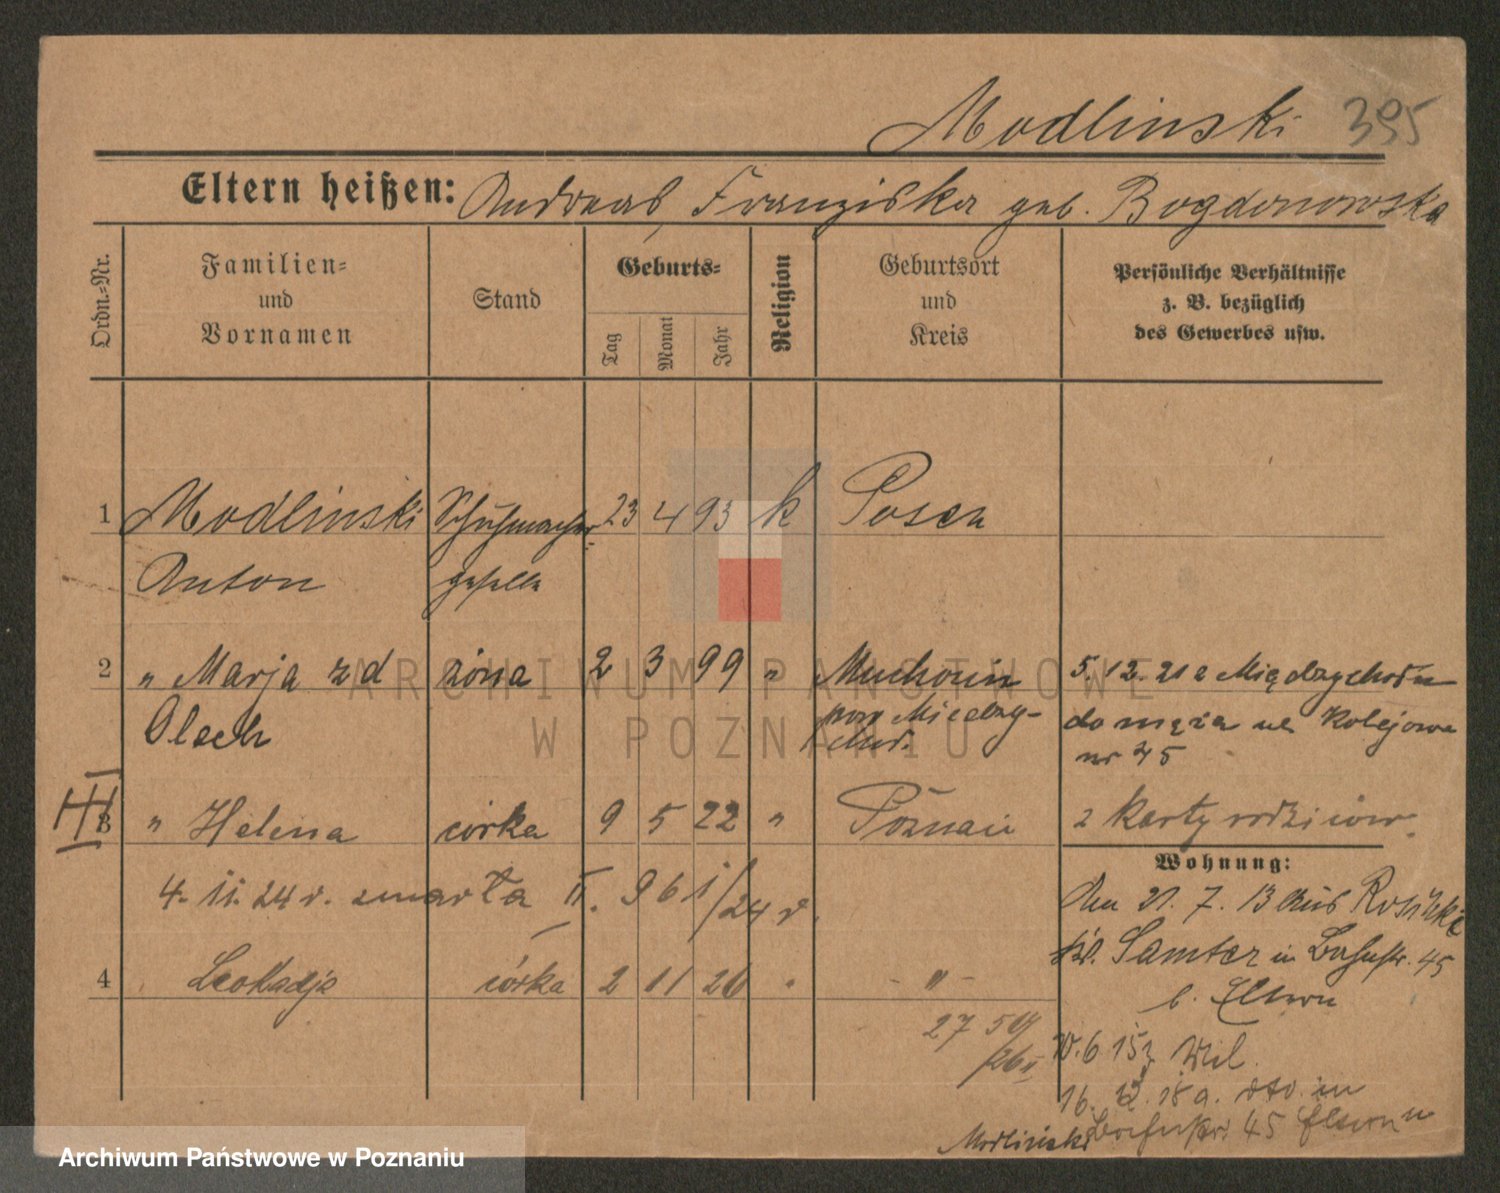 Modlinski 395
Eltern heißen: Andreas Franziska geb. Bogdonowska
Ordn.=Nr.
Familien=
und
Vornamen
Stand
Geburts=
Tag
Monat
Jahr
Religion
Geburtsort
und
Kreis
Persönliche Verhältnisse
z. B. bezüglich
des Gewerbes usw.
1 Modlinski Schuhmacher 23 4 93 k Posen
Anton geselle
2 „ Marja z d żona 2 3 99 „ Muchocin 5. 12. 21 z Międzychodu
Olsch pow Miedzy- do męża ul Kolejowa
chod. nr 45
III
3 „ Helena córka 9 5 22 „ Poznań z karty rodziców.
4. 11. 24 r. zmarła II. 961/24 r.
Wohnung:
Den 21. 7. 13 aus
Kr. Samter in Bahnstr. 45
b. Eltern
4 Leokadja córka 2 11 26 „ „
27 50
W. 6 15
16. 12. 18 a.
Modlinski Bahnstr. 45 Eltern
ARCHIWUM PAŃSTWOWE
W POZNANIU
Archiwum Państwowe w Poznaniu